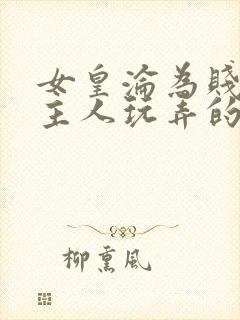 女皇淪為賤
主人玩弄的
柳熏風